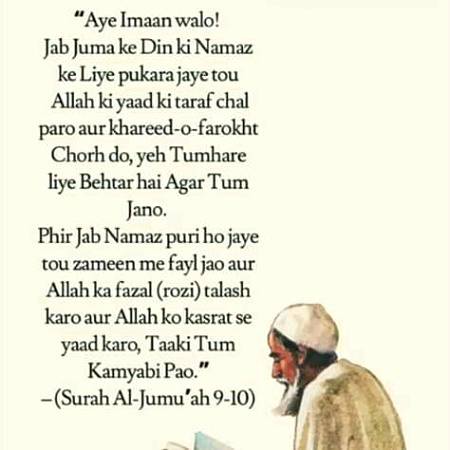 "Aye Imaan walo!
Jab Juma ke Din ki Namaz
ke Liye pukara jaye tou
Allah ki yaad ki taraf chal
paro aur khareed-o-farokht
Chorh do, yeh Tumhare
liye Behtar hai Agar Tum
Jano.
Phir Jab Namaz puri ho jaye
tou zameen me fayl jao aur
Allah ka fazal (rozi) talash
karo aur Allah ko kasrat se
yaad karo, Taaki Tum
Kamyabi Pao."
–(Surah Al-Jumu'ah 9-10)